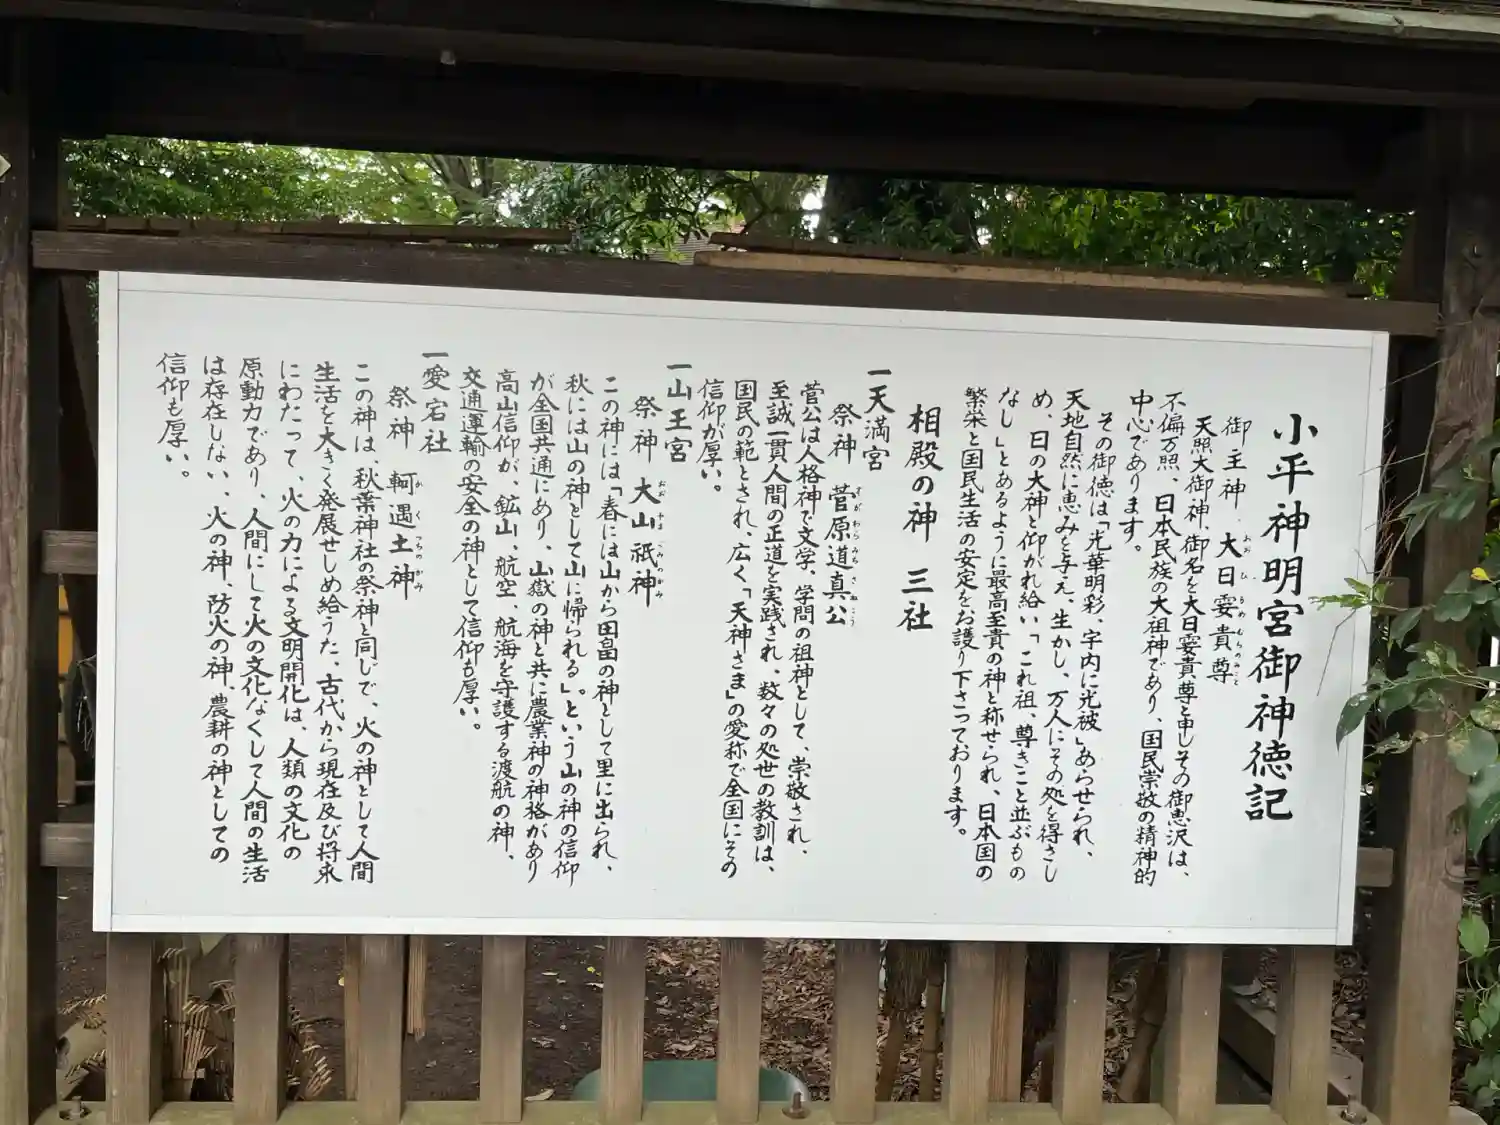 小平神明宮御神徳記
御主神 大日孁貴尊
おおひるめむちのみこと
天照大御神、御名を大日孁貴尊と申しその御恵沢は、
不偏万照、日本民族の大祖神であり、国民崇敬の精神的
中心であります。
その御徳は「光華明彩、宇内に光被」あらせられ、
天地自然に恵みを与え、生かし、万人にその処を得さし
め、日の大神と仰がれ給い「これ祖、尊きこと並ぶもの
なし」とあるように最高至貴の神と称せられ、日本国の
繁栄と国民生活の安定をお護り下さっております。
相殿の神 三社
一天満宮
祭神 菅原道真公
すがわらみちざねこう
菅公は人格神で文学、学問の祖神として、崇敬され、
至誠一貫人間の正道を実践され、数々の処世の教訓は、
国民の範とされ、広く「天神さま」の愛称で全国にその
信仰が厚い。
一山王宮
祭神 大山祇神
おおやまつみのかみ
この神には「春には山から田畠の神として里に出られ、
秋には山の神として山に帰られる」。という山の神の信仰
が全国共通にあり、山嶽の神と共に農業神の神格があり
高山信仰が、鉱山、航空、航海を守護する渡航の神、
交通運輸の安全の神として信仰も厚い。
一愛宕社
祭神 軻遇土神
かぐつちのかみ
この神は、秋葉神社の祭神と同じで、火の神として人間
生活を大きく発展せしめ給うた、古代から現在及び将来
にわたって、火の力による文明開化は、人類の文化の
原動力であり、人間にして火の文化なくして人間の生活
は存在しない、火の神、防火の神、農耕の神としての
信仰も厚い。